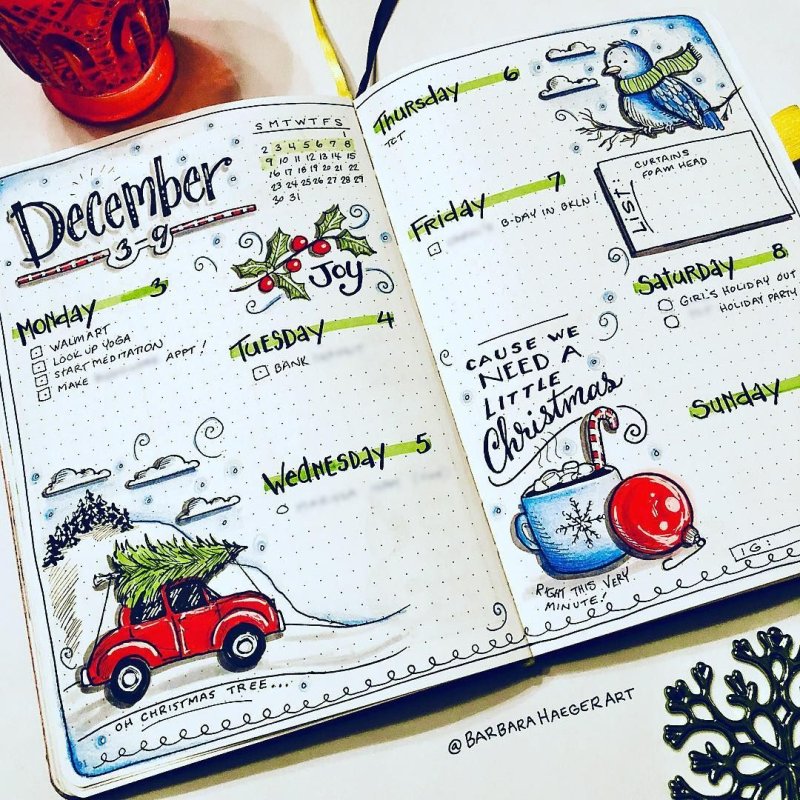 December
3-9
S M T W T F S
1
2 3 4 5 6 7 8
9 10 11 12 13 14 15
16 17 18 19 20 21 22
23 24 25 26 27 28 29
30 31
JOY
MONDAY 3
WALMART
LOOK UP YOGA
START MEDITATION
MAKE APPT!
TUESDAY 4
BANK
WEDNESDAY 5
OH CHRISTMAS TREE...
THURSDAY 6
TCT
FRIDAY 7
B-DAY IN BKLN!
LIST:
CURTAINS
FOAM HEAD
SATURDAY 8
GIRL'S HOLIDAY OUT
HOLIDAY PARTY
SUNDAY
CAUSE WE
NEED A
LITTLE
Christmas
RIGHT THIS VERY
MINUTE!
IG:
@BARBARAHAEGERART